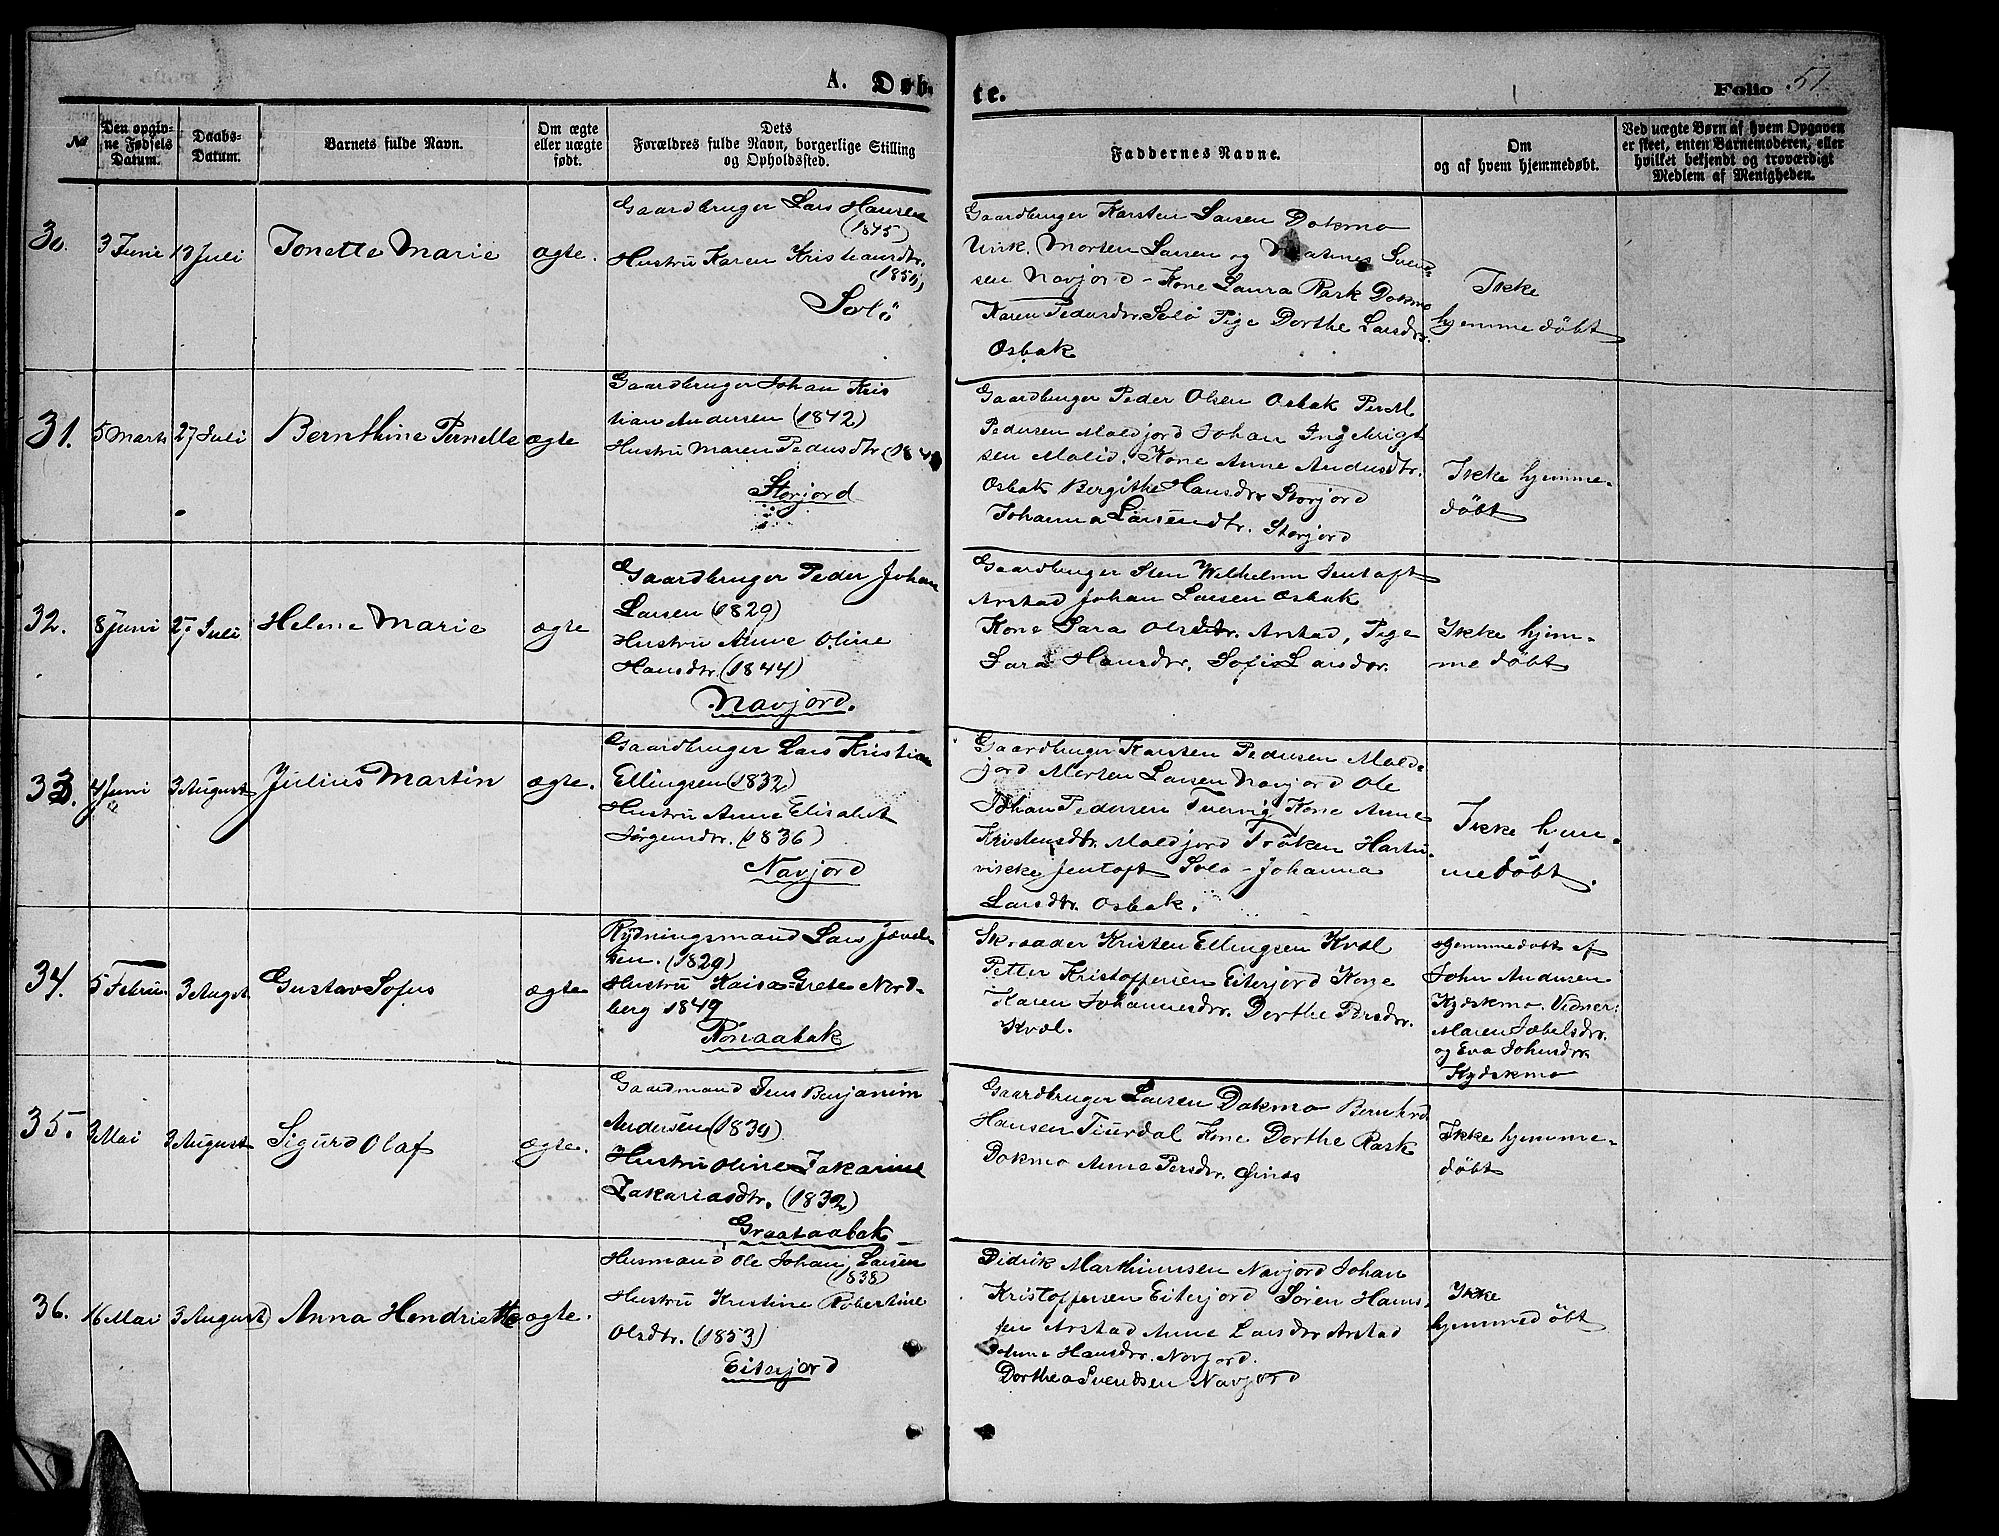 A. Døb-
te.
Folio 51.
No
Den opgiv-
ne Fødsels
Datum.
Daabs-
Datum.
Barnets fulde Navn.
Om ægte
eller uægte
født.
Dets
Forældres fulde Navn, borgerlige Stilling
og Opholdssted.
Faddernes Navne.
Om
og af hvem hjemmedøbt.
Ved uægte Børn af hvem Opgaven
er skeet, enten Barnemoderen, eller
hvilket bekjendt og troværdigt
Medlem af Menigheden.
30.
3 Juni
13 Juli
Tonette Marie
ægte.
Gaardbruger Lars Hansen
(1845)
Hustru Karen Kristiansdtr.
Solö
Gaardbruger Karsten Larsen Dokmo
Unk. Morten Larsen og Svend-
sen Navjord - Kone Laura Rask Dokmo
Karen Pedersdtr. Solö Pige Dorthe Larsdtr.
Osbak
Ikke
hjemmedöbt
31.
5 Marts
27 Juli
Bernthine Pernelle
ægte
Gaardbruger Johan Kris
tian Andersen (1842)
Hustru Maren Pedersdtr
Storjord
Gaardbruger Peder Olsen Osbak Per M
Pedersen Maldjord Johan Ingebrigt
sen Kone Anne Andersdtr.
Osbak Bergithe Hansdtr Storjord
Johanna Larsendtr. Storjord
Ikke hjemme-
döbt
32.
8 Juni
27 Juli
Helene Marie
ægte
Gaardbruger Peder Johan
Larsen (1829)
Hustru Anne Oline
Hansdtr (1844)
Navjord.
Gaardbruger Sten Wilhelm Jentoft
Arstad Johan Larsen Osbak
Kone Sara Olsdtr. Arstad, Pige
Sara Hansdtr. Sofie Larsdtr.
Ikke hjem-
medöbt
33.
4 Juni
3 August
Julius Martin
ægte.
Gaardbruger Lars Kristian
Ellingsen (1832)
Hustru Anne Elisabet
Jörgensdtr. (1836)
Navjord
Gaardbruger Karsten Pedersen Mald-
jord Morten Larsen Navjord Ole
Johan Pedersen Tvervig Kone Anne
Kristensdtr. Maldjord Fröken Hartu-
vikke Jentoft Solö - Johanna
Larsdtr. Osbak.
Ikke hjem-
medöbt.
34.
5 Februar
3 August
Gustav Sofus
ægte
Rydningsmand Lars
sen. (1829)
Hustru Kaisa-Grete Nord-
berg 1849
Rönaabak
Skrædder Kristen Ellingsen Kvæl
Petter Kristoffersen Eiterjord Kone
Karen Johannesdtr. Dorthe Persdtr.
Kvæl.
Hjemmedöbt af
John Andersen
Kydskmo. Vidner:
Maren
og Eva Johnsdtr.
Kydskmo
35.
3 Mai
3 August
Sigurd Olaf
ægte.
Gaardmand Jens Benjamin
Andersen (1839)
Hustru Oline Zakarine
Zakariasdtr. (1832)
Graataabak
Gaardbruger Larsen Dokmo Bernhrd
Hansen Kone Dorthe Rask
Dokmo Anne Persdtr.
Ikke hjemme-
döbt
36.
16 Mai
3 August
Anna Hendriette
ægte.
Husmand Ole Johan Larsen
(1838)
Hustru Kristine Robertine
Olsdtr. (1853)
Eiterjord
Didrik Marthinusen Navjord Johan
Kristoffersen Eiterjord Sören Hans-
sen Arstad Anne Larsdtr Arstad
Hansdtr. Navjord.
Dorthea Svendsen Navjord
Ikke
hjemmedöbt